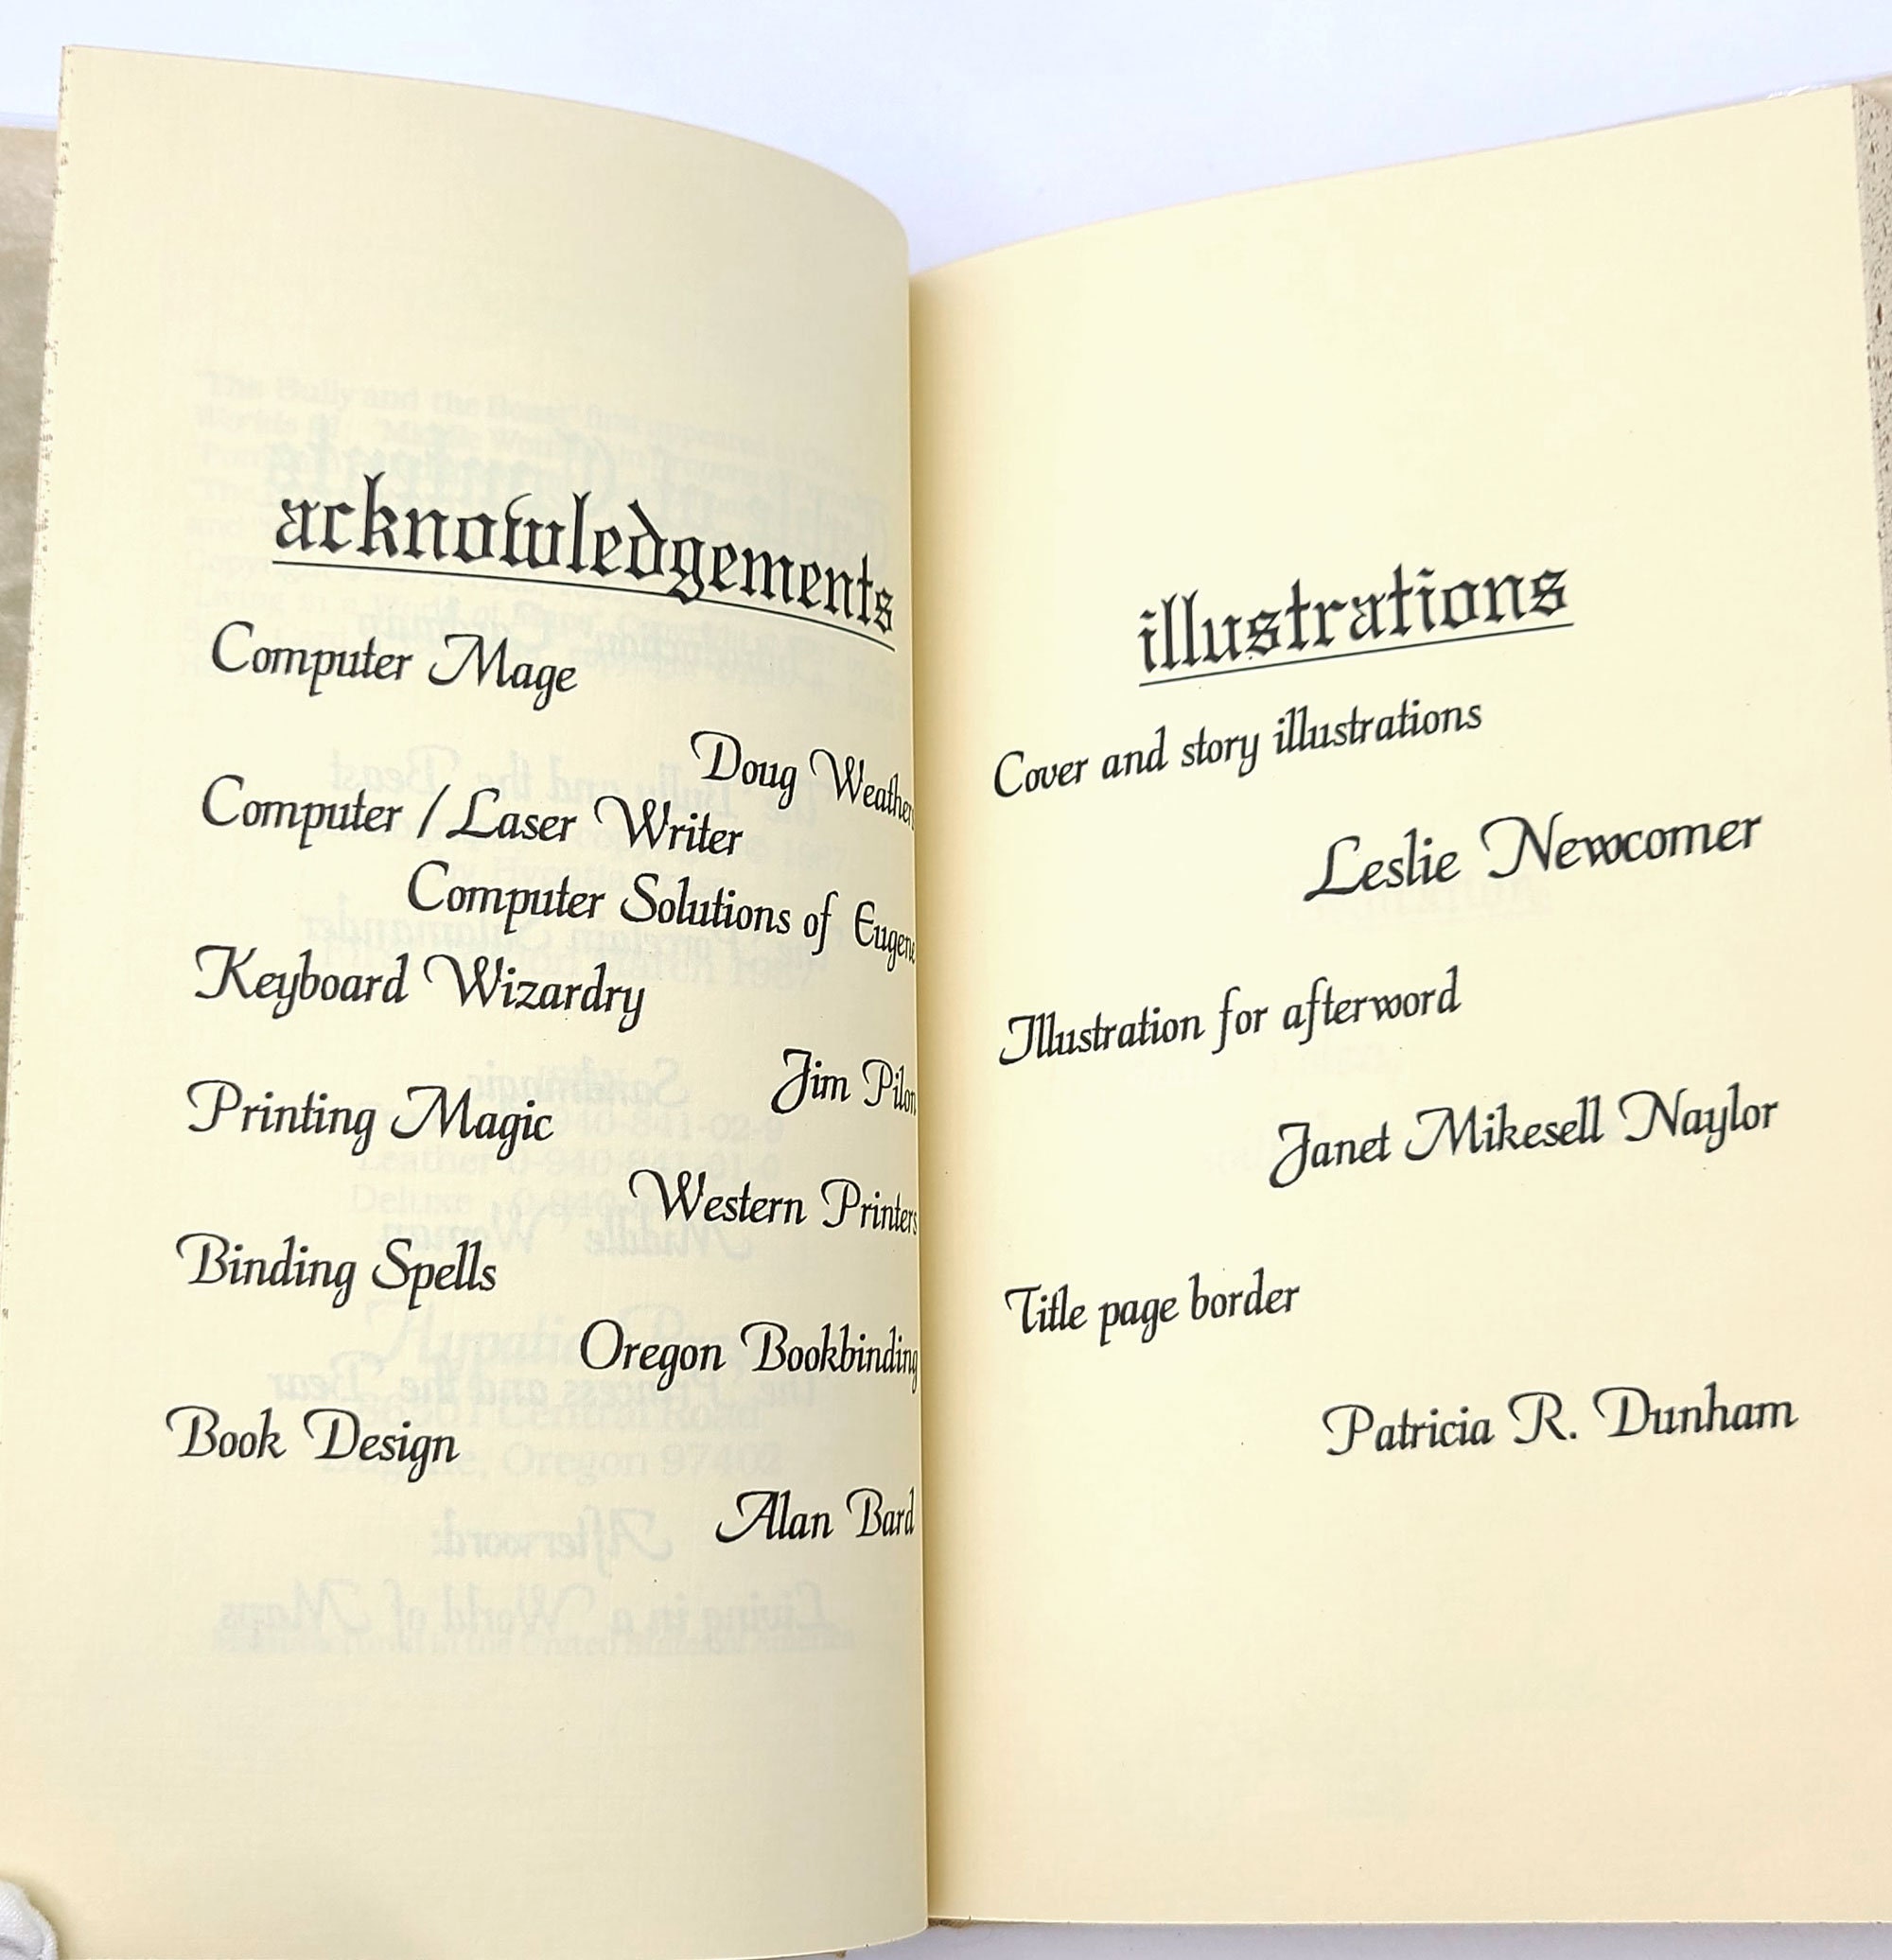 acknowledgements
Computer Mage
Doug Weather
Computer / Laser Writer
Computer Solutions of Eugene
Keyboard Wizardry
Jim Pilon
Printing Magic
Western Printers
Binding Spells
Oregon Bookbinding
Book Design
Alan Bard
illustrations
Cover and story illustrations
Leslie Newcomer
Illustration for afterword
Janet Mikesell Naylor
Title page border
Patricia R. Dunham